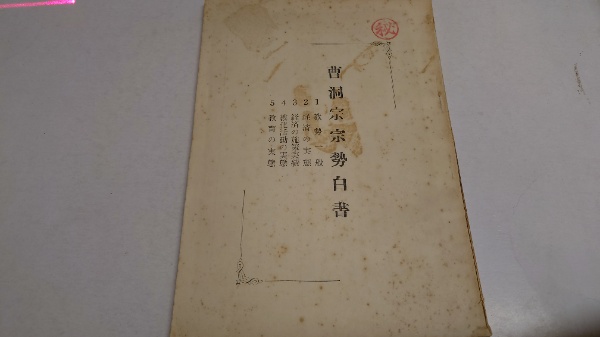 ㊙
曹洞宗宗勢白書
1 教勢一般
2 経済の実態
3 経済の施策実績
4 教化活動の実態
5 教育の実態